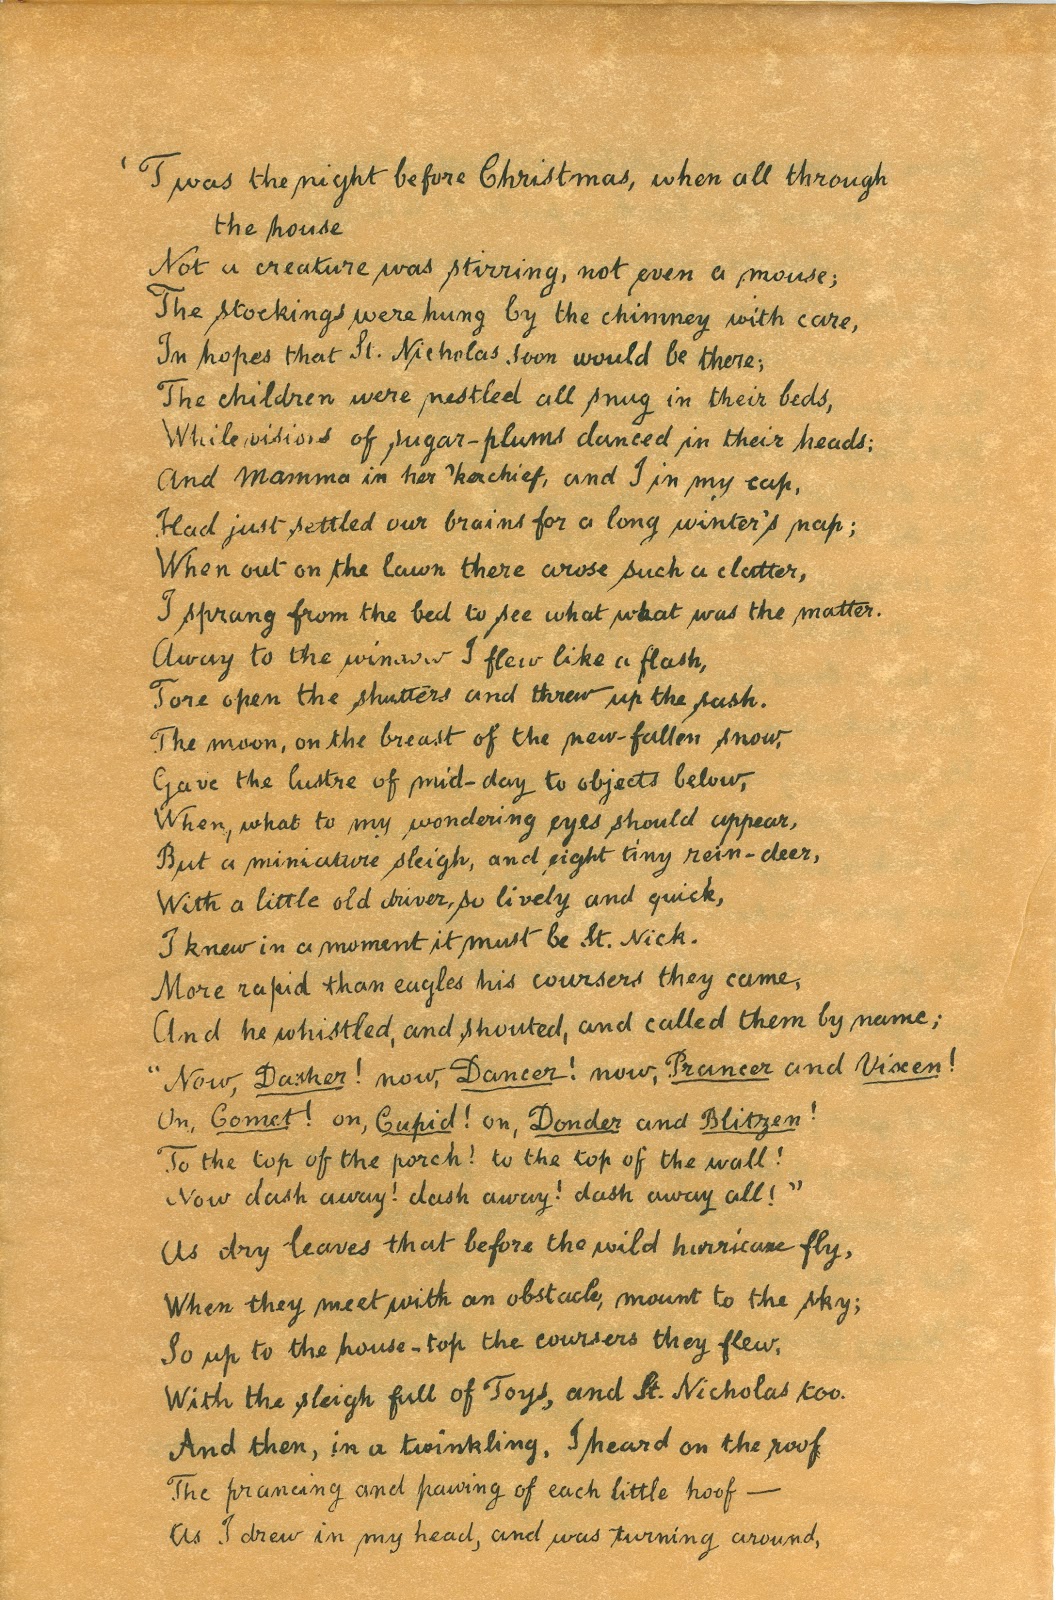 'Twas the night before Christmas, when all through
the house
Not a creature was stirring, not even a mouse;
The stockings were hung by the chimney with care,
In hopes that St. Nicholas soon would be there;
The children were nestled all snug in their beds,
While visions of sugar-plums danced in their heads;
And Mamma in her 'kerchief, and I in my cap,
Had just settled our brains for a long winter's nap;
When out on the lawn there arose such a clatter,
I sprang from the bed to see what what was the matter.
Away to the window I flew like a flash,
Tore open the shutters and threw up the sash.
The moon, on the breast of the new-fallen snow,
Gave the lustre of mid-day to objects below,
When, what to my wondering eyes should appear,
But a miniature sleigh, and eight tiny rein-deer,
With a little old driver, so lively and quick,
I knew in a moment it must be St. Nick.
More rapid than eagles his coursers they came,
And he whistled, and shouted, and called them by name;
"Now, Dasher! now, Dancer! now, Prancer and Vixen!
On, Comet! on, Cupid! on, Donder and Blitzen!
To the top of the porch! to the top of the wall!
Now dash away! dash away! dash away all!"
As dry leaves that before the wild hurricane fly,
When they meet with an obstacle, mount to the sky;
So up to the house-top the coursers they flew,
With the sleigh full of Toys, and St. Nicholas too.
And then, in a twinkling, I heard on the roof
The prancing and pawing of each little hoof —
As I drew in my head, and was turning around,